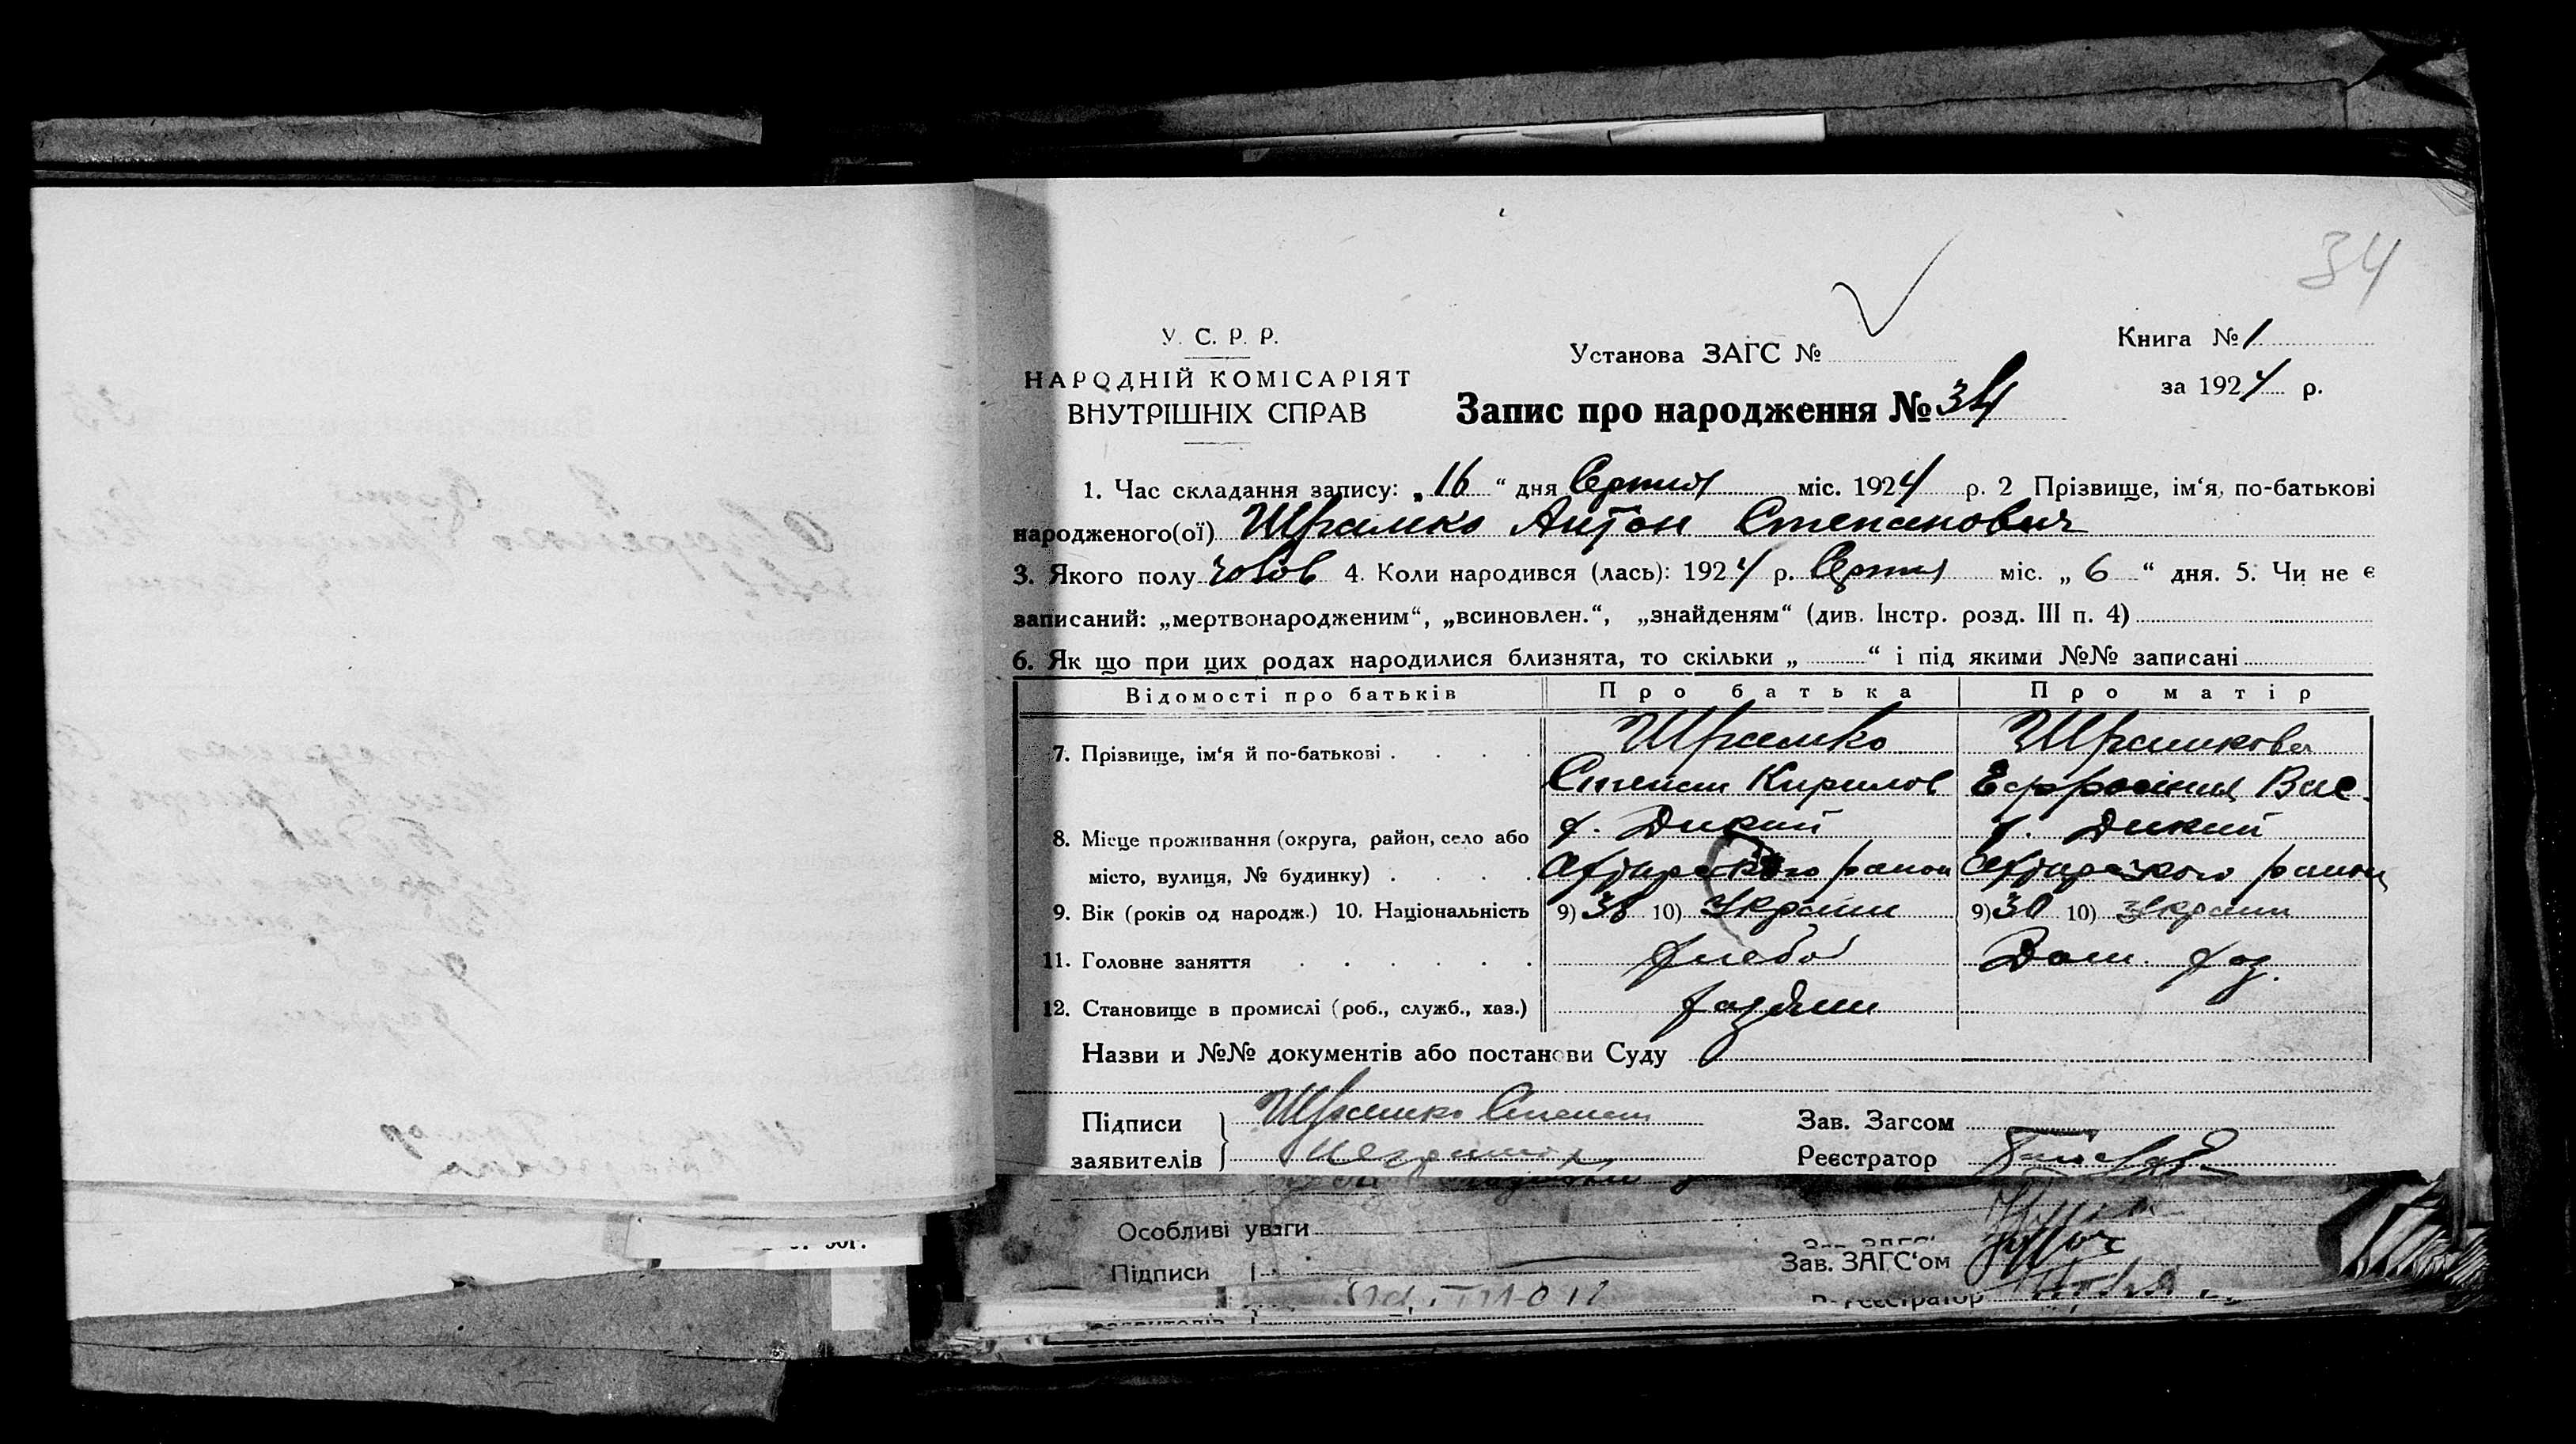 34
У. С. Р. Р.
НАРОДНІЙ КОМІСАРІЯТ
ВНУТРІШНІХ СПРАВ
Установа ЗАГС №
Запис про народження № 34
Книга № 1
за 1924 р.
1. Час складання запису: „16“ дня Серпня міс. 1924 р. 2 Прізвище, ім‘я, по-батькові
народженого(ої) Шрамко Антон Степанович
3. Якого полу чолов 4. Коли народився (лась): 1924 р. Серпня міс. „6“ дня. 5. Чи не є
записаний: „мертвонародженим“, „всиновлен.“, „знайденям“ (див. Інстр. розд. III п. 4)
6. Як що при цих родах народилися близнята, то скільки „ “ і під якими №№ записані
Відомості про батьків Про батька Про матір
7. Прізвище, ім‘я й по-батькові . . . . Шрамко Шрамкова
Степан Кирилов Еффросінія Вас.
8. Місце проживання (округа, район, село або х. Дикий х. Дикий
місто, вулиця, № будинку) . . . . району
9. Вік (років од народж.) 10. Національність 9) 38 10) Україн 9) 30 10) Україн
11. Головне заняття . . . . . . Хлебоб Дом. хаз.
12. Становище в промислі (роб., служб., хаз.) хазяин
Назви и №№ документів або постанови Суду
Підписи Шрамко Степан Зав. Загсом
заявителів Реєстратор
Особливі уваги
Підписи Зав. ЗАГС‘ом
Реєстратор